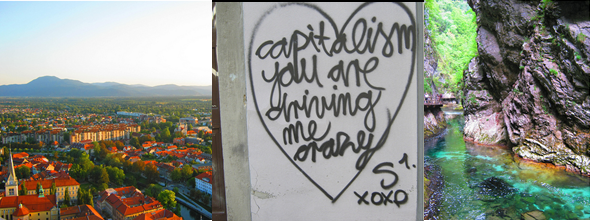 capitalism
you are
driving
me
crazy
S1.
xoxo